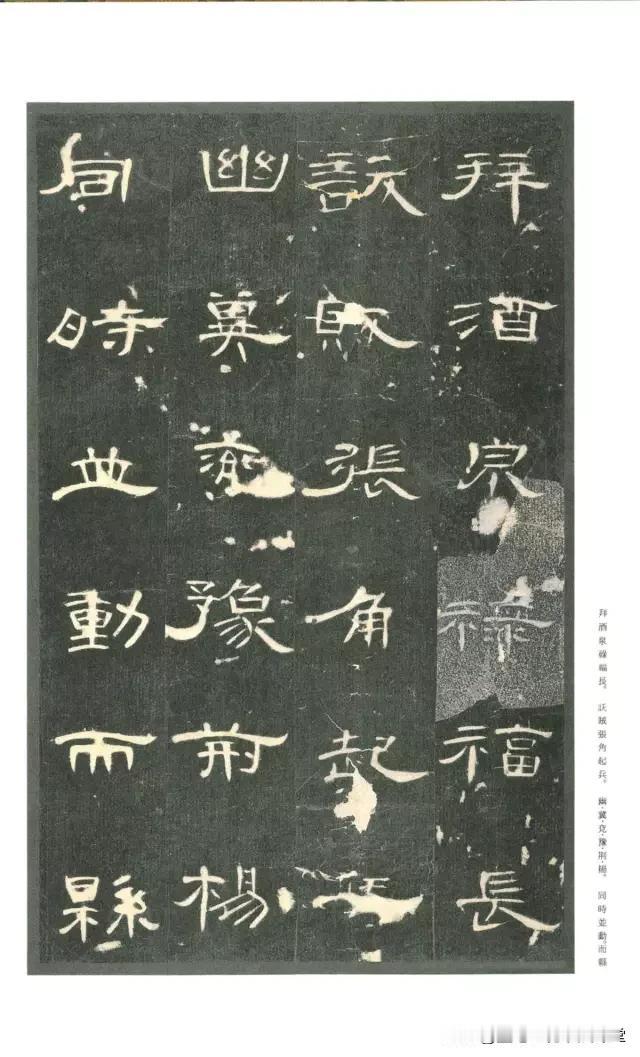 拜酒泉祿福長
訞賊張角起兵
幽冀兖豫荊楊
同時並動而縣
拜酒泉祿福長。訞賊張角起兵。幽·冀·兖·豫·荊·楊。同時並動。而縣